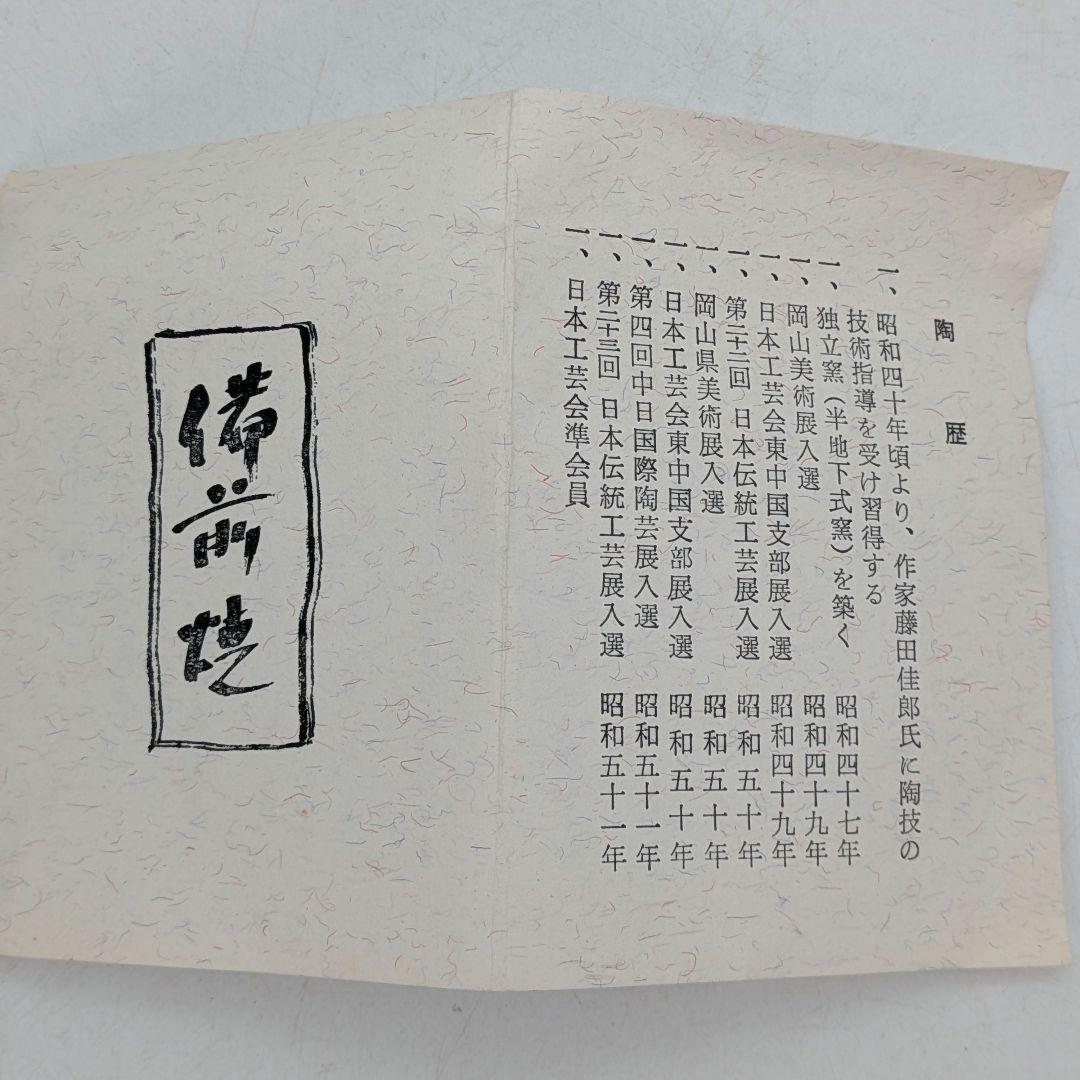 陶歴
一、昭和四十年頃より、作家藤田佳郎氏に陶技の
技術指導を受け習得する
一、独立窯（半地下式窯）を築く 昭和四十七年
一、岡山美術展入選 昭和四十九年
一、日本工芸会東中国支部展入選 昭和四十九年
一、第二十二回 日本伝統工芸展入選 昭和五十年
一、岡山県美術展入選 昭和五十年
一、日本工芸会東中国支部展入選 昭和五十年
一、第四回中日国際陶芸展入選 昭和五十一年
一、第二十三回 日本伝統工芸展入選 昭和五十一年
一、日本工芸会準会員
備前焼